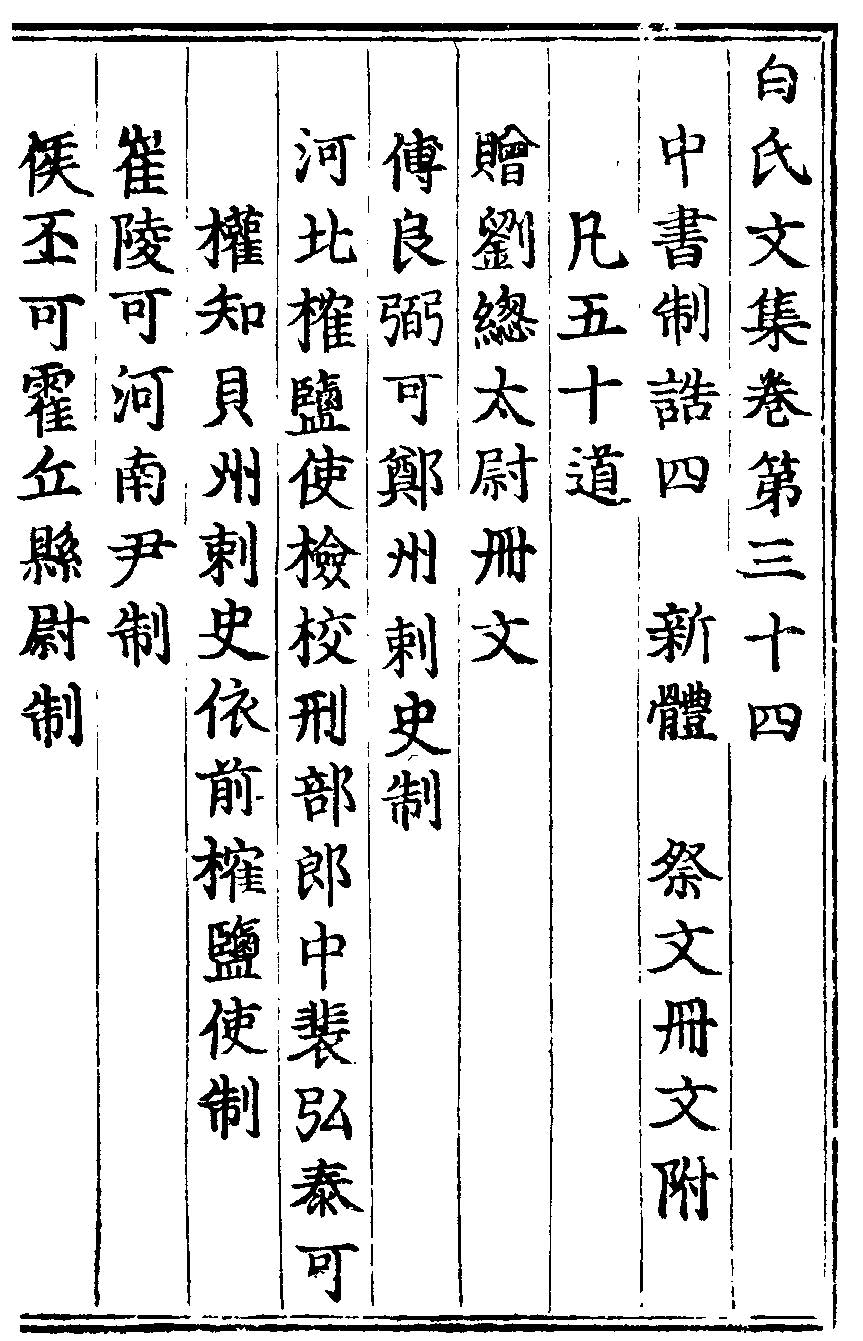 白氏文集卷第三十四
中書制誥四　新體　祭文冊文附
凡五十道
贈劉總太尉冊文
傅良弼可鄭州刺史制
河北榷鹽使檢校刑部郎中裴弘泰可
權知貝州刺史依前榷鹽使制
崔陵可河南尹制
侯丕可霍丘縣尉制